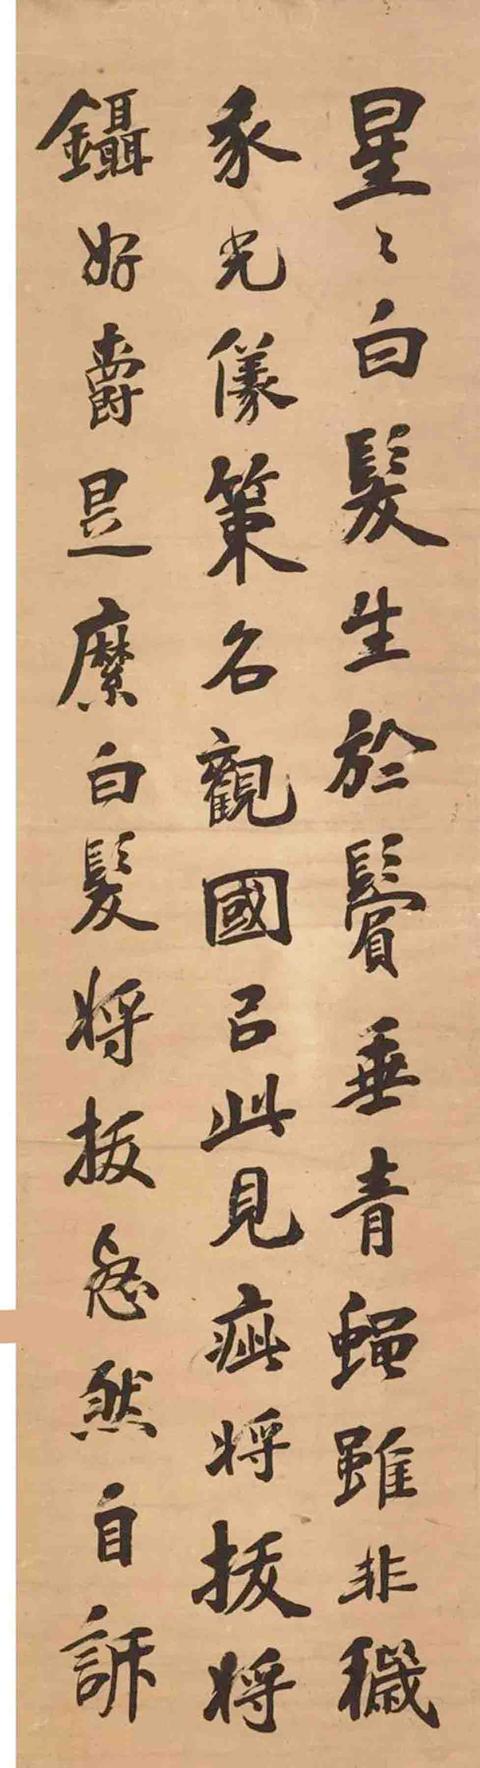 星〻白髮生於鬢垂青蠅雖非穢
我光儀策名觀國㕥此見疵將拔將
鑷好爵是縻白髮將拔惄然自訴